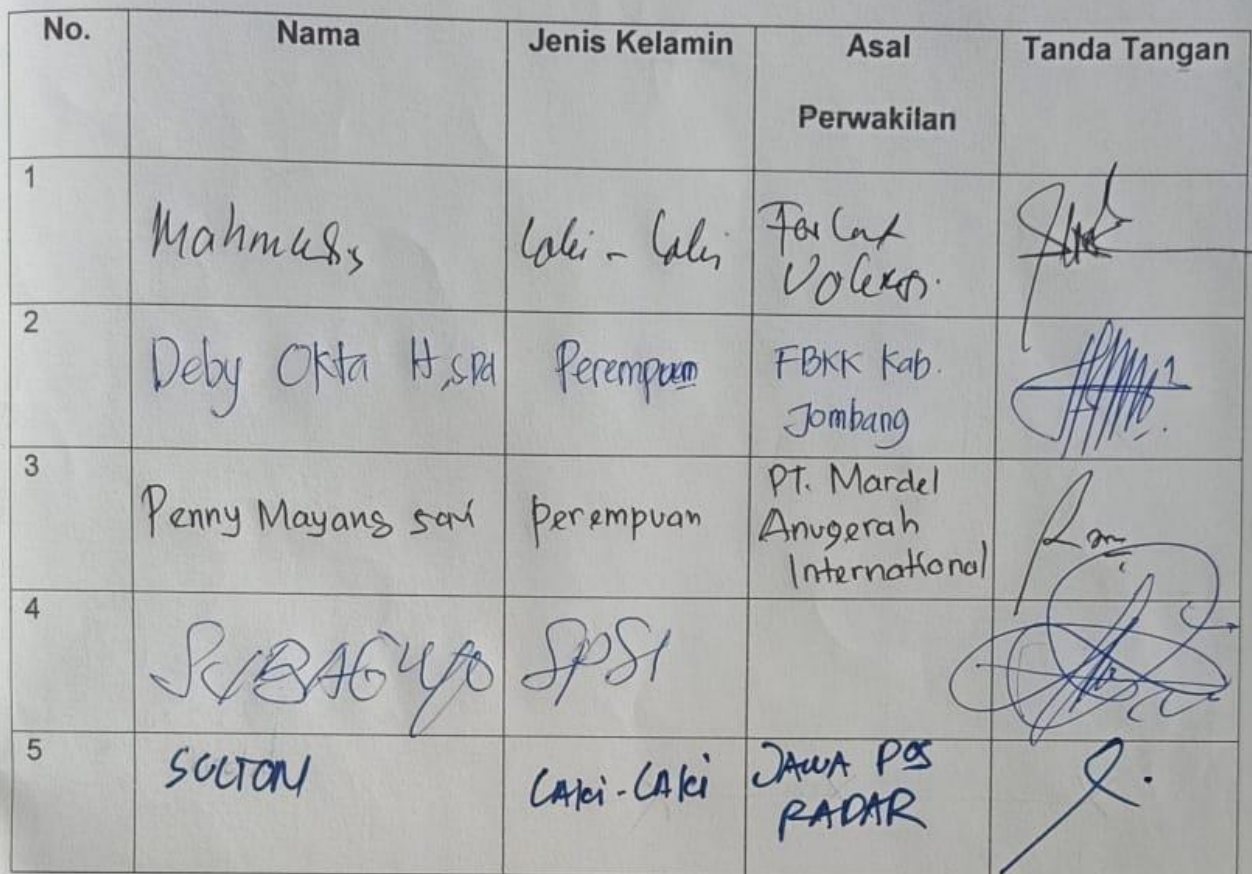 No. Nama Jenis Kelamin Asal Tanda Tangan
Perwakilan
1
Laki - Laki
2
Deby Okta H,SPd Perempuan FBKK Kab.
Jombang
3
Penny Mayang sari perempuan PT. Mardel
Anugerah
International
4
SUBAGYO SPSI
5
SULTON LAki-LAki JAWA POS
RADAR